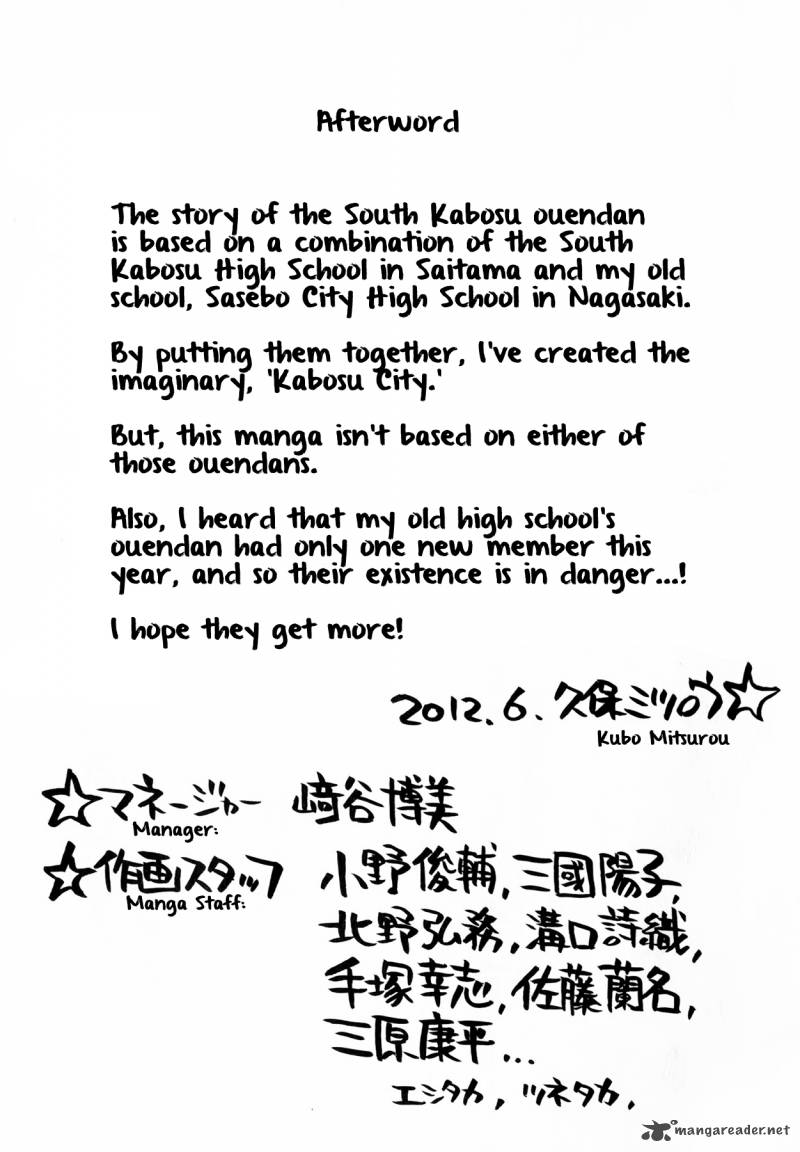 Afterword
The story of the South Kabosu ouendan
is based on a combination of the South
Kabosu High School in Saitama and my old
school, Sasebo City High School in Nagasaki.
By putting them together, I've created the
imaginary, 'Kabosu City.'
But, this manga isn't based on either of
those ouendans.
Also, I heard that my old high school's
ouendan had only one new member this
year, and so their existence is in danger...!
I hope they get more!
2012.6.久保ミツロウ☆
Kubo Mitsurou
☆マネージャー 﨑谷博美
Manager:
☆作画スタッフ 小野俊輔,三國陽子,
Manga Staff:
北野弘務,溝口詩織,
手塚幸志,佐藤蘭名,
三原康平...
エシタカ,ツネタカ,
mangareader.net